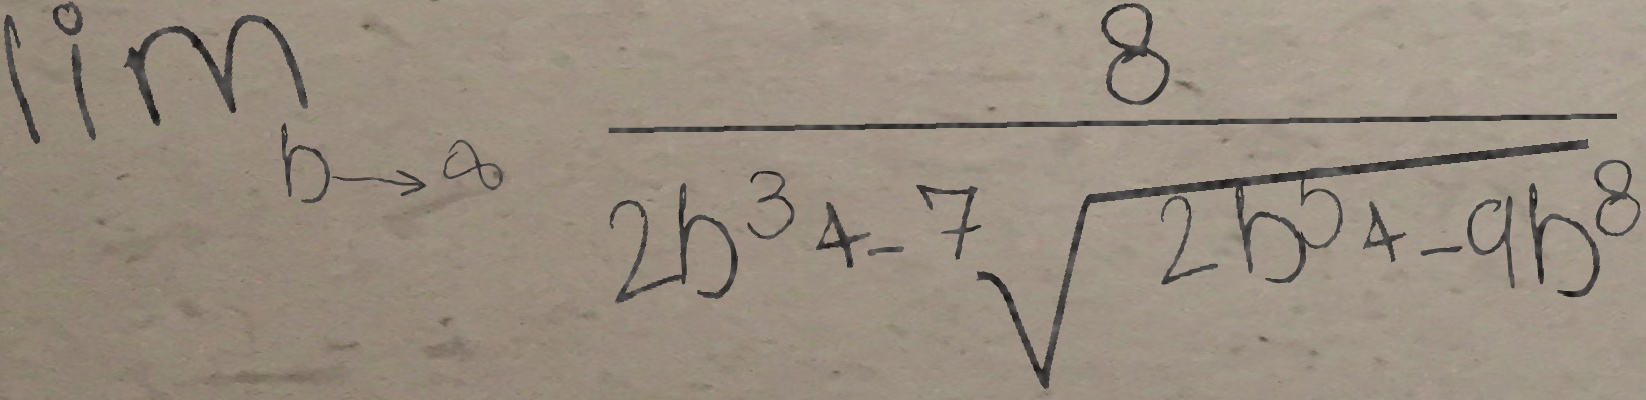 \lim_{b \to \infty} \frac{8}{2b^3 + -7\sqrt{2b^5 + -9b^8}}